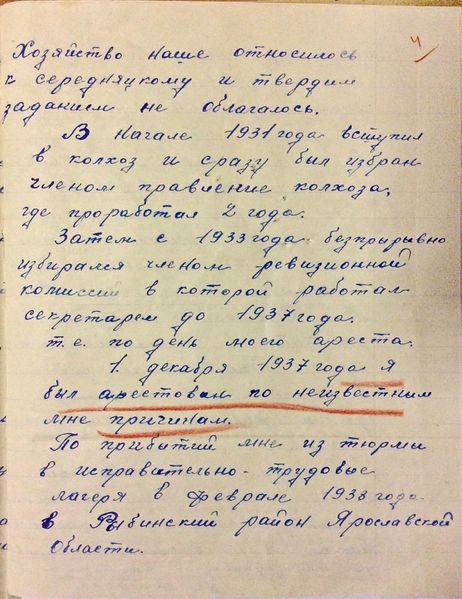 4
Хозяйство наше относилось
к середняцкому и твердим
заданием не облагалось.
В начале 1931 года вступил
в колхоз и сразу был избран
членом правление колхоза,
где проработал 2 года.
Затем с 1933 года безпрырывно
избирался членом ревизионной
комиссий в которой работал
секретарем до 1937 года.
т.е. по день моего ареста.
1. декабря 1937 года я
был арестован по неизвестным
мне причинам.
По прибытий мне из тюрмы
в исправательно-трудовые
лагеря в феврале 1938 года
в Рыбинский район Ярославской
области.